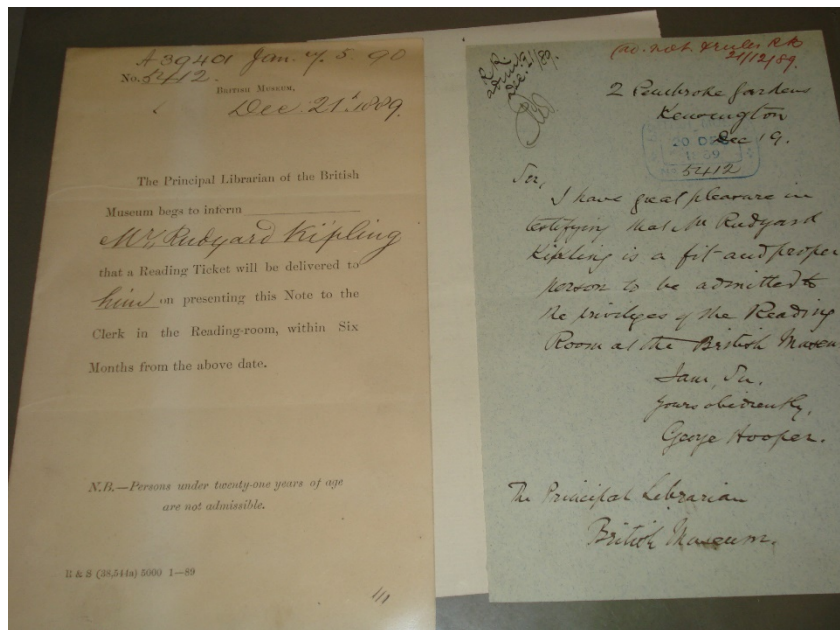 A39401 Jan. 7. 5. 90
No. 5412.
BRITISH MUSEUM,
Dec: 21st 1889.
The Principal Librarian of the British
Museum begs to inform
Mr. Rudyard Kipling
that a Reading Ticket will be delivered to
him on presenting this Note to the
Clerk in the Reading-room, within Six
Months from the above date.
N.B.—Persons under twenty-one years of age
are not admissible.
B & S (38,544a) 5000 1—89
rules RB
21/12/89.
2 Pembroke Gardens
Kensington
Dec 19.
20 DEC
5412
Sir,
I have great pleasure in
testifying that Mr Rudyard
Kipling is a fit and proper
person to be admitted to
the privileges of the Reading
Room at the British Museum
I am, Sir,
yours obediently,
George Hooper.
The Principal Librarian
British Museum.